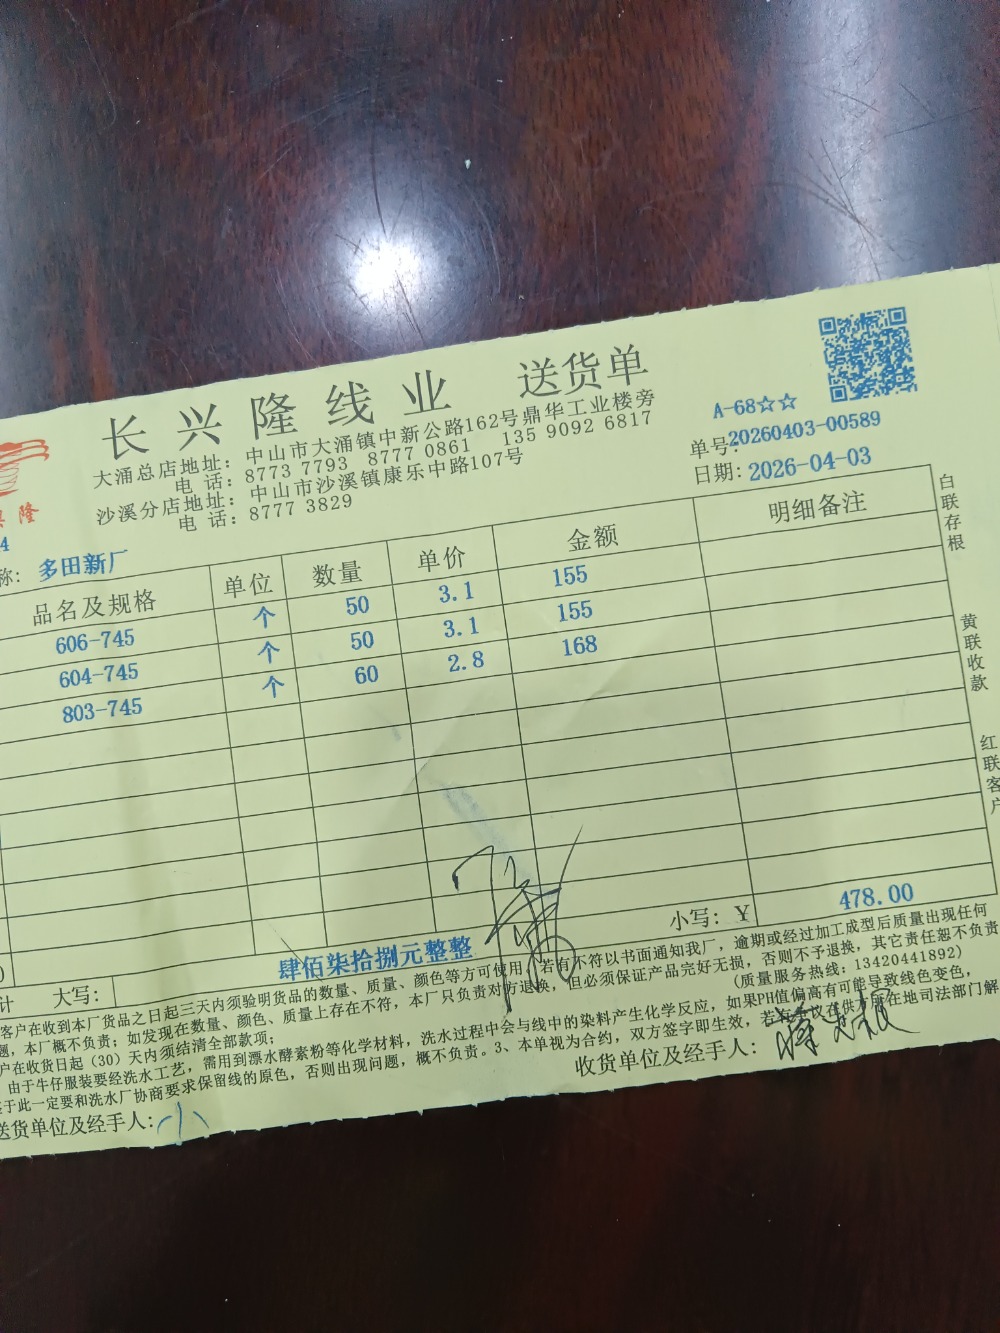 长兴隆线业 送货单
大涌总店地址：中山市大涌镇中新公路162号鼎华工业楼旁
电 话：8773 7793 8777 0861 135 9092 6817
沙溪分店地址：中山市沙溪镇康乐中路107号
电 话：8777 3829
A-68☆☆
单号:20260403-00589
日期: 2026-04-03
隆
4
称: 多田新厂
品名及规格 单位 数量 单价 金额 明细备注
606-745 个 50 3.1 155
604-745 个 50 3.1 155
803-745 个 60 2.8 168
白联存根
黄联收款
红联客户
小写: ¥ 478.00
计 大写: 肆佰柒拾捌元整整
客户在收到本厂货品之日起三天内须验明货品的数量、质量、颜色等方可使用，若有不符以书面通知我厂，逾期或经过加工成型后质量出现任何
题，本厂概不负责；如发现在数量、颜色、质量上存在不符，本厂只负责对方退换，但必须保证产品完好无损，否则不予退换，其它责任恕不负责
户在收货日起（30）天内须结清全部款项； (质量服务热线: 13420441892)
由于牛仔服装要经洗水工艺，需用到漂水酵素粉等化学材料，洗水过程中会与线中的染料产生化学反应，如果PH值偏高有可能导致线色变色，
于此一定要和洗水厂协商要求保留线的原色，否则出现问题，概不负责。3、本单视为合约，双方签字即生效，若有争议在供方所在地司法部门解
送货单位及经手人: 收货单位及经手人: